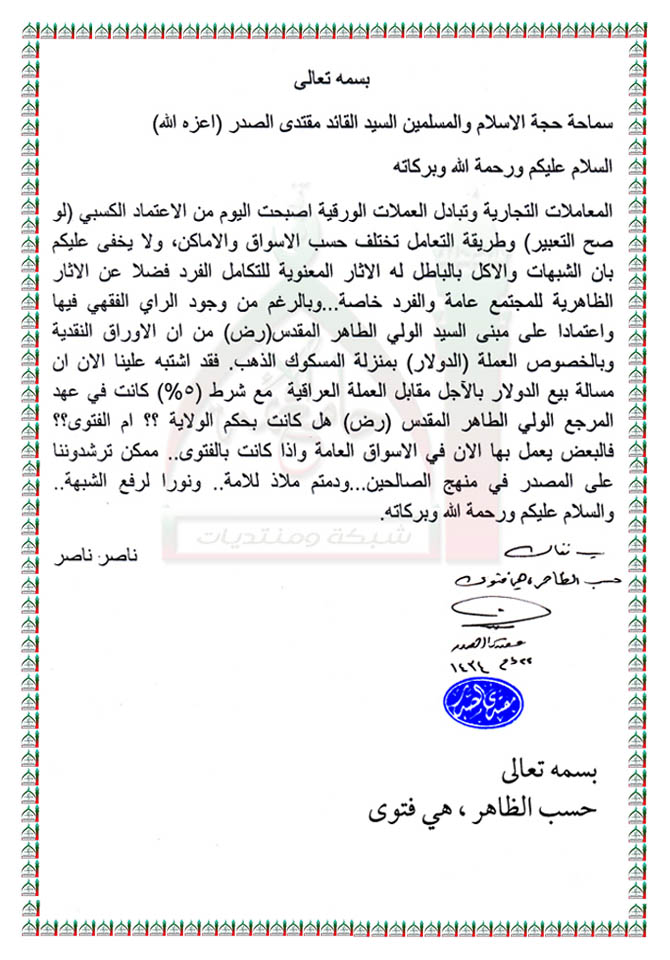 بسمه تعالى
سماحة حجة الاسلام والمسلمين السيد القائد مقتدى الصدر (اعزه الله)
السلام عليكم ورحمة الله وبركاته
المعاملات التجارية وتبادل العملات الورقية اصبحت اليوم من الاعتماد الكسبي (لو
صح التعبير) وطريقة التعامل تختلف حسب الاسواق والاماكن، ولا يخفى عليكم
بان الشبهات والاكل بالباطل له الاثار المعنوية للتكامل الفرد فضلا عن الاثار
الظاهرية للمجتمع عامة والفرد خاصة...وبالرغم من وجود الراي الفقهي فيها
واعتمادا على مبنى السيد الولي الطاهر المقدس(رض) من ان الاوراق النقدية
وبالخصوص العملة (الدولار) بمنزلة المسكوك الذهب. فقد اشتبه علينا الان ان
مسالة بيع الدولار بالآجل مقابل العملة العراقية مع شرط (٥%) كانت في عهد
المرجع الولي الطاهر المقدس (رض) هل كانت بحكم الولاية ؟؟ ام الفتوى؟؟
فالبعض يعمل بها الان في الاسواق العامة واذا كانت بالفتوى.. ممكن ترشدوننا
على المصدر في منهج الصالحين...ودمتم ملاذ للامة.. ونورا لرفع الشبهة..
والسلام عليكم ورحمة الله وبركاته.
شبكة ومنتديات
ناصر: ناصر
بسمه تعالى
حسب الظاهر، هي فتوى
مقتدى الصدر
١٤٣٤
مقتدى الصدر
بسمه تعالى
حسب الظاهر ، هي فتوى